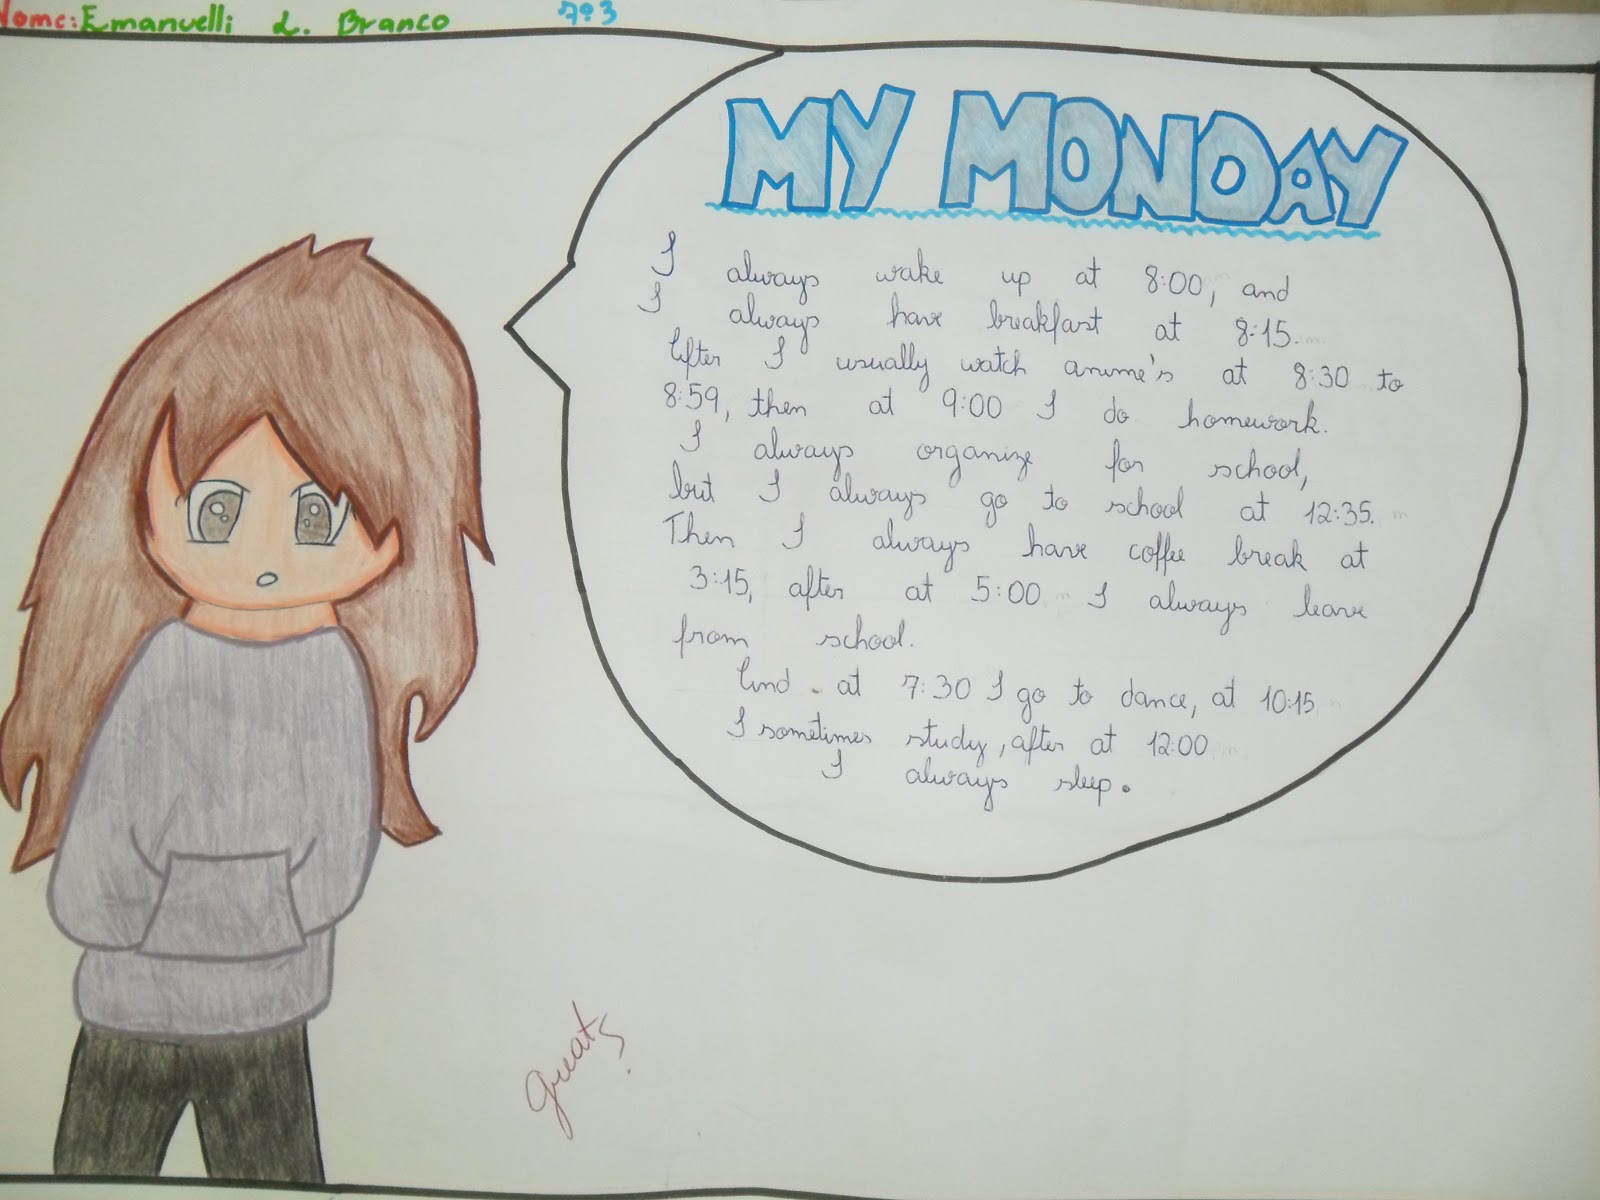 Nome: Emanuelli L. Branco 7º3
MY MONDAY
I always wake up at 8:00, and
I always have breakfast at 8:15.
After I usually watch anime's at 8:30 to
8:59, then at 9:00 I do homework.
I always organize for school,
but I always go to school at 12:35.
Then I always have coffee break at
3:15, after at 5:00 I always leave
from school.
And at 7:30 I go to dance, at 10:15
I sometimes study, after at 12:00
I always sleep.
Great